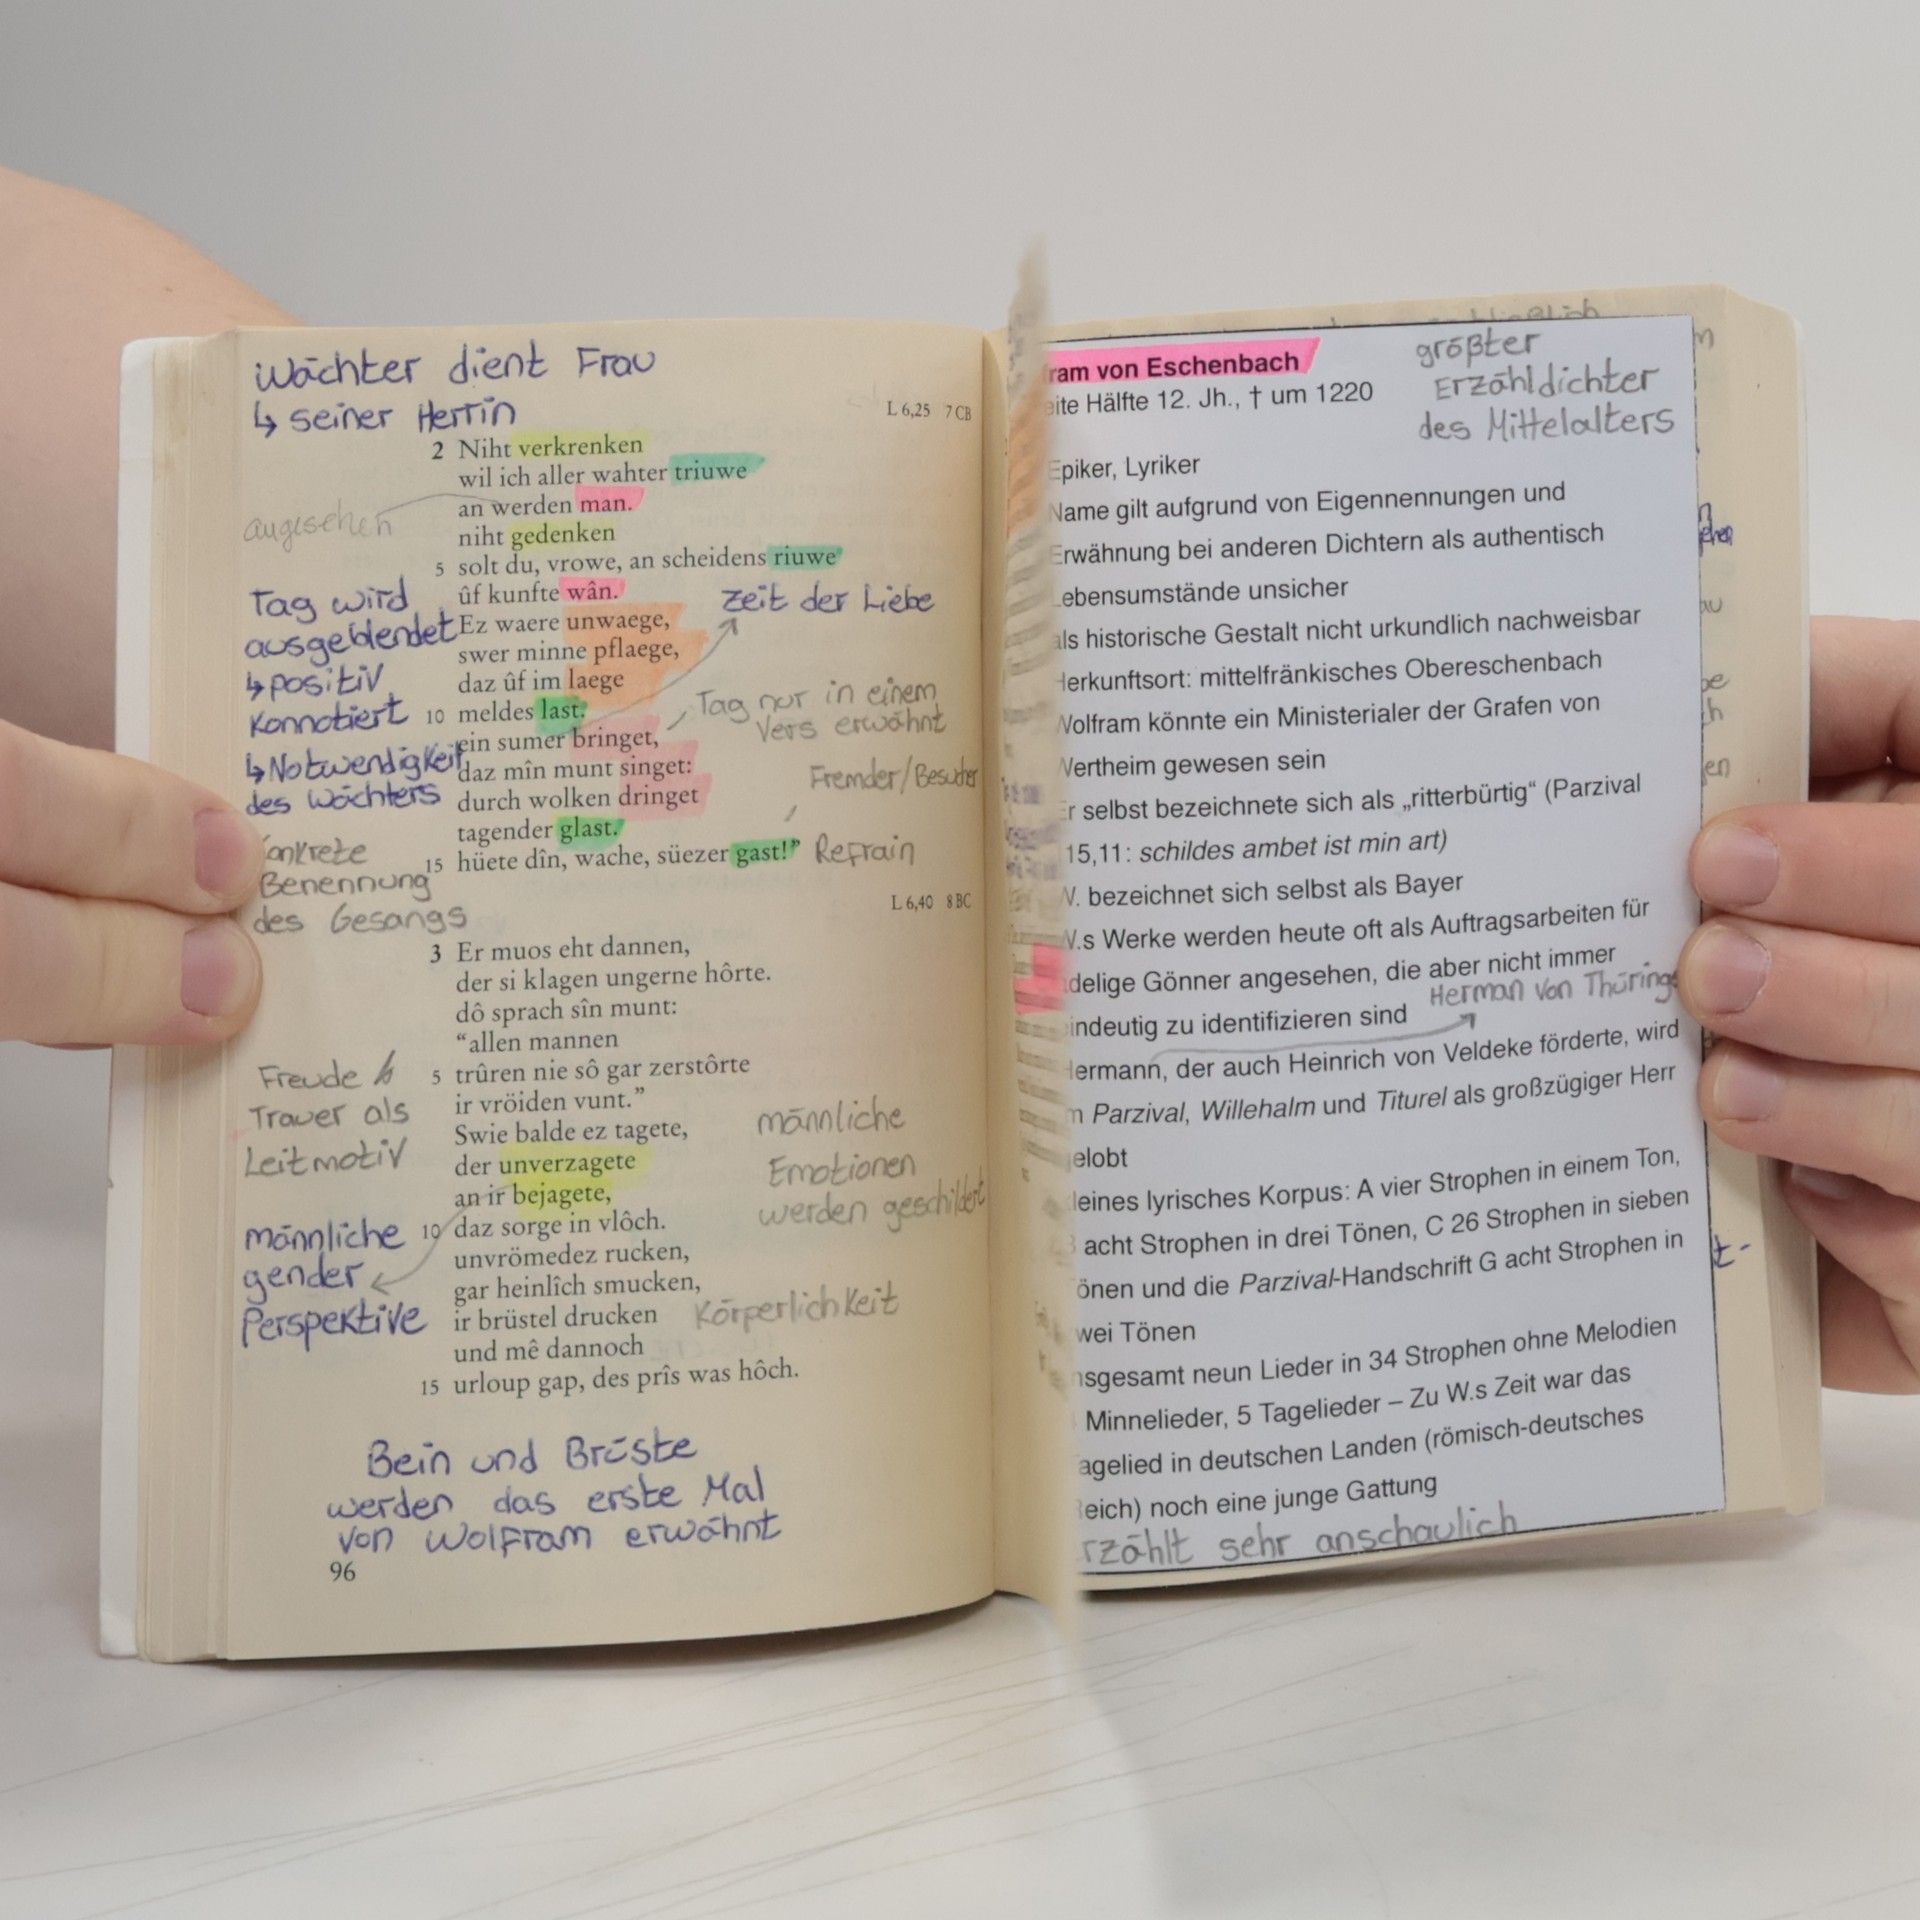 Wächter dient Frau
↳ seiner Herrin
L 6,25 7 CB
2 Niht verkrenken
wil ich aller wahter triuwe
an werden man.
angesehen
niht gedenken
5 solt du, vrowe, an scheidens riuwe
ûf kunfte wân.
Ez waere unwaege,
swer minne pflaege,
daz ûf im laege
10 meldes last.
ein sumer bringet,
daz mîn munt singet:
durch wolken dringet
tagender glast.
15 hüete dîn, wache, süezer gast!”
Tag wird
ausgeblendet
↳ positiv
Konnotiert
↳ Notwendigkeit
des Wächters
onkrete
Benennung
des Gesangs
Zeit der Liebe
Tag nur in einem
Vers erwähnt
Fremder/Besucher
Refrain
L 6,40 8 BC
3 Er muos eht dannen,
der si klagen ungerne hôrte.
dô sprach sîn munt:
“allen mannen
5 trûren nie sô gar zerstôrte
ir vröiden vunt.”
Swie balde ez tagete,
der unverzagete
an ir bejagete,
10 daz sorge in vlôch.
unvrömedez rucken,
gar heinlîch smucken,
ir brüstel drucken
und mê dannoch
15 urloup gap, des prîs was hôch.
Freude
Trauer als
Leitmotiv
männliche
gender
Perspektive
männliche
Emotionen
werden geschildert
Körperlichkeit
Bein und Brüste
werden das erste Mal
von Wolfram erwähnt
96
ram von Eschenbach
größter
Erzähldichter
des Mittelalters
eite Hälfte 12. Jh., † um 1220
Epiker, Lyriker
Name gilt aufgrund von Eigennennungen und
Erwähnung bei anderen Dichtern als authentisch
ebensumstände unsicher
als historische Gestalt nicht urkundlich nachweisbar
Herkunftsort: mittelfränkisches Obereschenbach
Wolfram könnte ein Ministerialer der Grafen von
Wertheim gewesen sein
Er selbst bezeichnete sich als „ritterbürtig“ (Parzival
15,11: schildes ambet ist min art)
W. bezeichnet sich selbst als Bayer
W.s Werke werden heute oft als Auftragsarbeiten für
delige Gönner angesehen, die aber nicht immer
indeutig zu identifizieren sind
Herman von Thüring
Hermann, der auch Heinrich von Veldeke förderte, wird
m Parzival, Willehalm und Titurel als großzügiger Herr
elobt
leines lyrisches Korpus: A vier Strophen in einem Ton,
acht Strophen in drei Tönen, C 26 Strophen in sieben
önen und die Parzival-Handschrift G acht Strophen in
wei Tönen
nsgesamt neun Lieder in 34 Strophen ohne Melodien
Minnelieder, 5 Tagelieder – Zu W.s Zeit war das
agelied in deutschen Landen (römisch-deutsches
eich) noch eine junge Gattung
rzählt sehr anschaulich